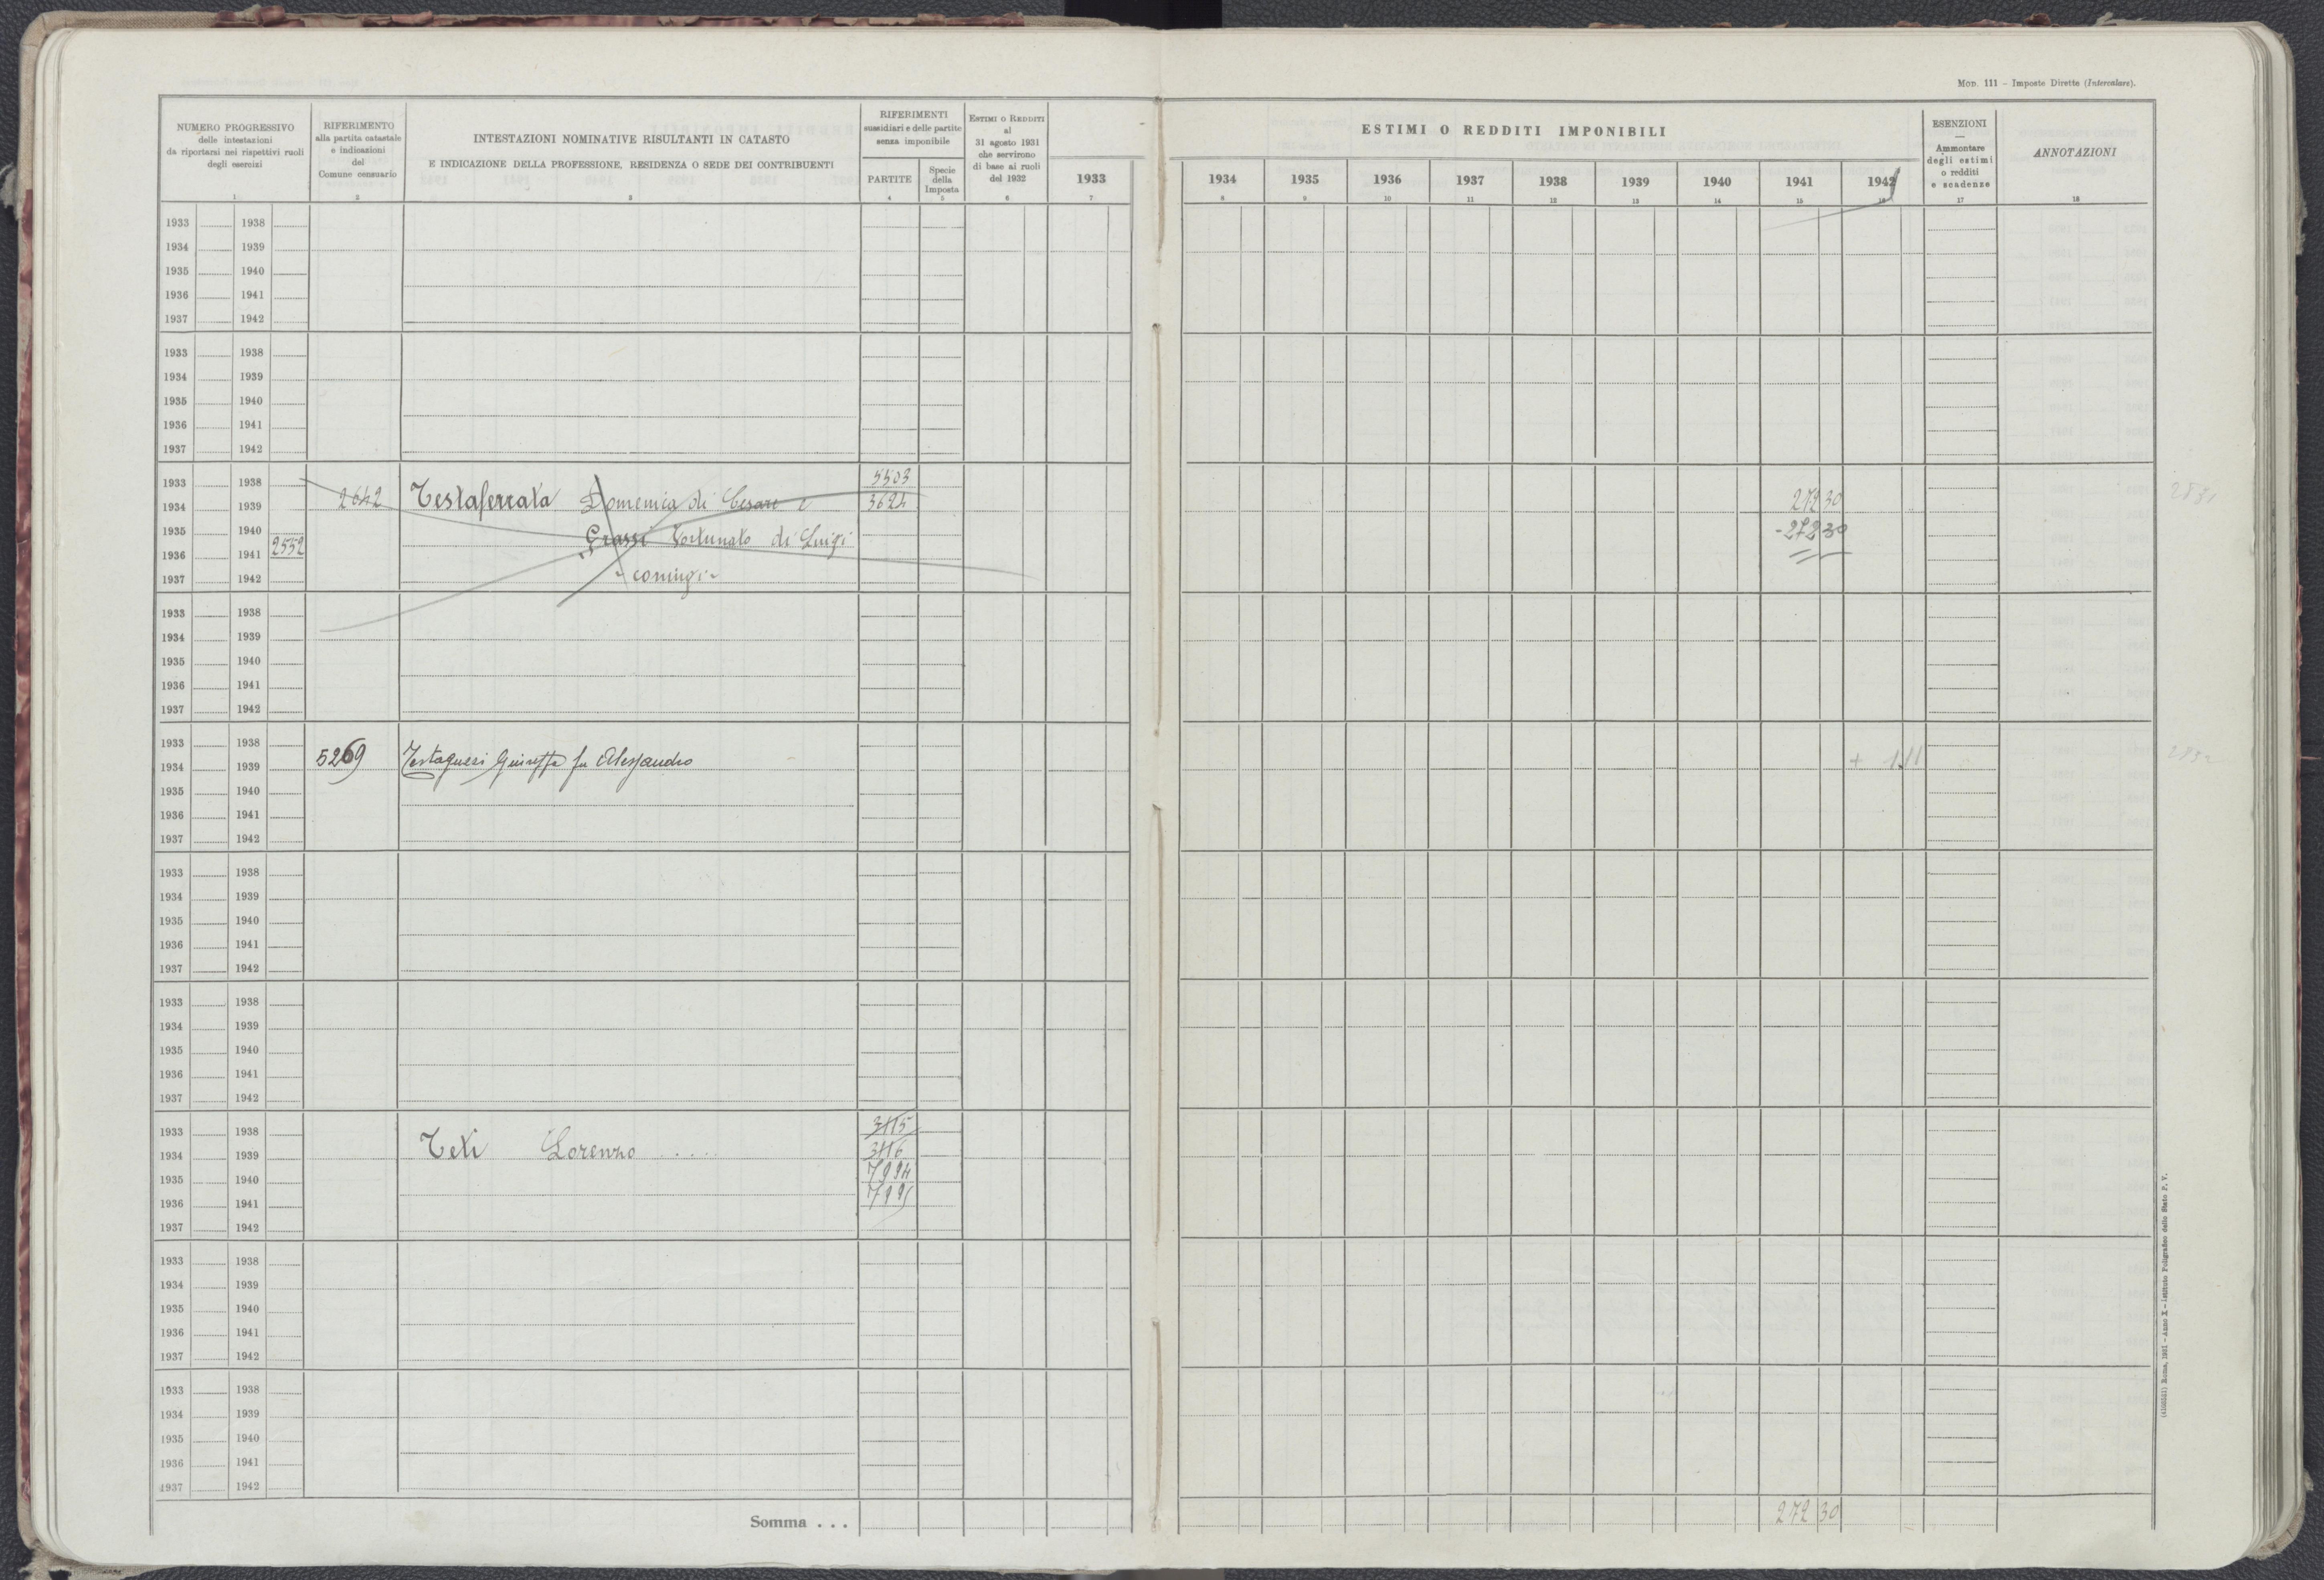 Mod. 111 - Imposte Dirette (Intercalare).
NUMERO PROGRESSIVO
delle intestazioni
da riportarsi nei rispettivi ruoli
degli esercizi
1
RIFERIMENTO
alla partita catastale
e indicazioni
del
Comune censuario
2
INTESTAZIONI NOMINATIVE RISULTANTI IN CATASTO
E INDICAZIONE DELLA PROFESSIONE, RESIDENZA O SEDE DEI CONTRIBUENTI
3
RIFERIMENTI
sussidiari e delle partite
senza imponibile
PARTITE
4
Specie
della
Imposta
5
Estimi o Redditi
al
31 agosto 1931
che servirono
di base ai ruoli
del 1932
6
1933
7
ESTIMI O REDDITI IMPONIBILI
1934 1935 1936 1937 1938 1939 1940 1941 1942
8 9 10 11 12 13 14 15 16
ESENZIONI
—
Ammontare
degli estimi
o redditi
e scadenze
17
ANNOTAZIONI
18
1933 1938
1934 1939
1935 1940
1936 1941
1937 1942
1933 1938
1934 1939
1935 1940
1936 1941
1937 1942
1933 1938 5503
1934 1939 2642 Testaferrata Domenica di Cesare e 3624 272 30 2831
1935 1940 Grassi Fortunato di Luigi -272 30
1936 1941 2552
1937 1942 - coniugi -
1933 1938
1934 1939
1935 1940
1936 1941
1937 1942
1933 1938
1934 1939 5269 Testaguzzi Giuseppa fu Alessandro + 1 11 2832
1935 1940
1936 1941
1937 1942
1933 1938
1934 1939
1935 1940
1936 1941
1937 1942
1933 1938
1934 1939
1935 1940
1936 1941
1937 1942
1933 1938 3115
1934 1939 Teti Lorenzo ..... 3116
1935 1940 7994
1936 1941 7995
1937 1942
1933 1938
1934 1939
1935 1940
1936 1941
1937 1942
1933 1938
1934 1939
1935 1940
1936 1941
1937 1942
Somma . . . 272 30
(4100561) Roma, 1931 - Anno X - Istituto Poligrafico dello Stato P. V.